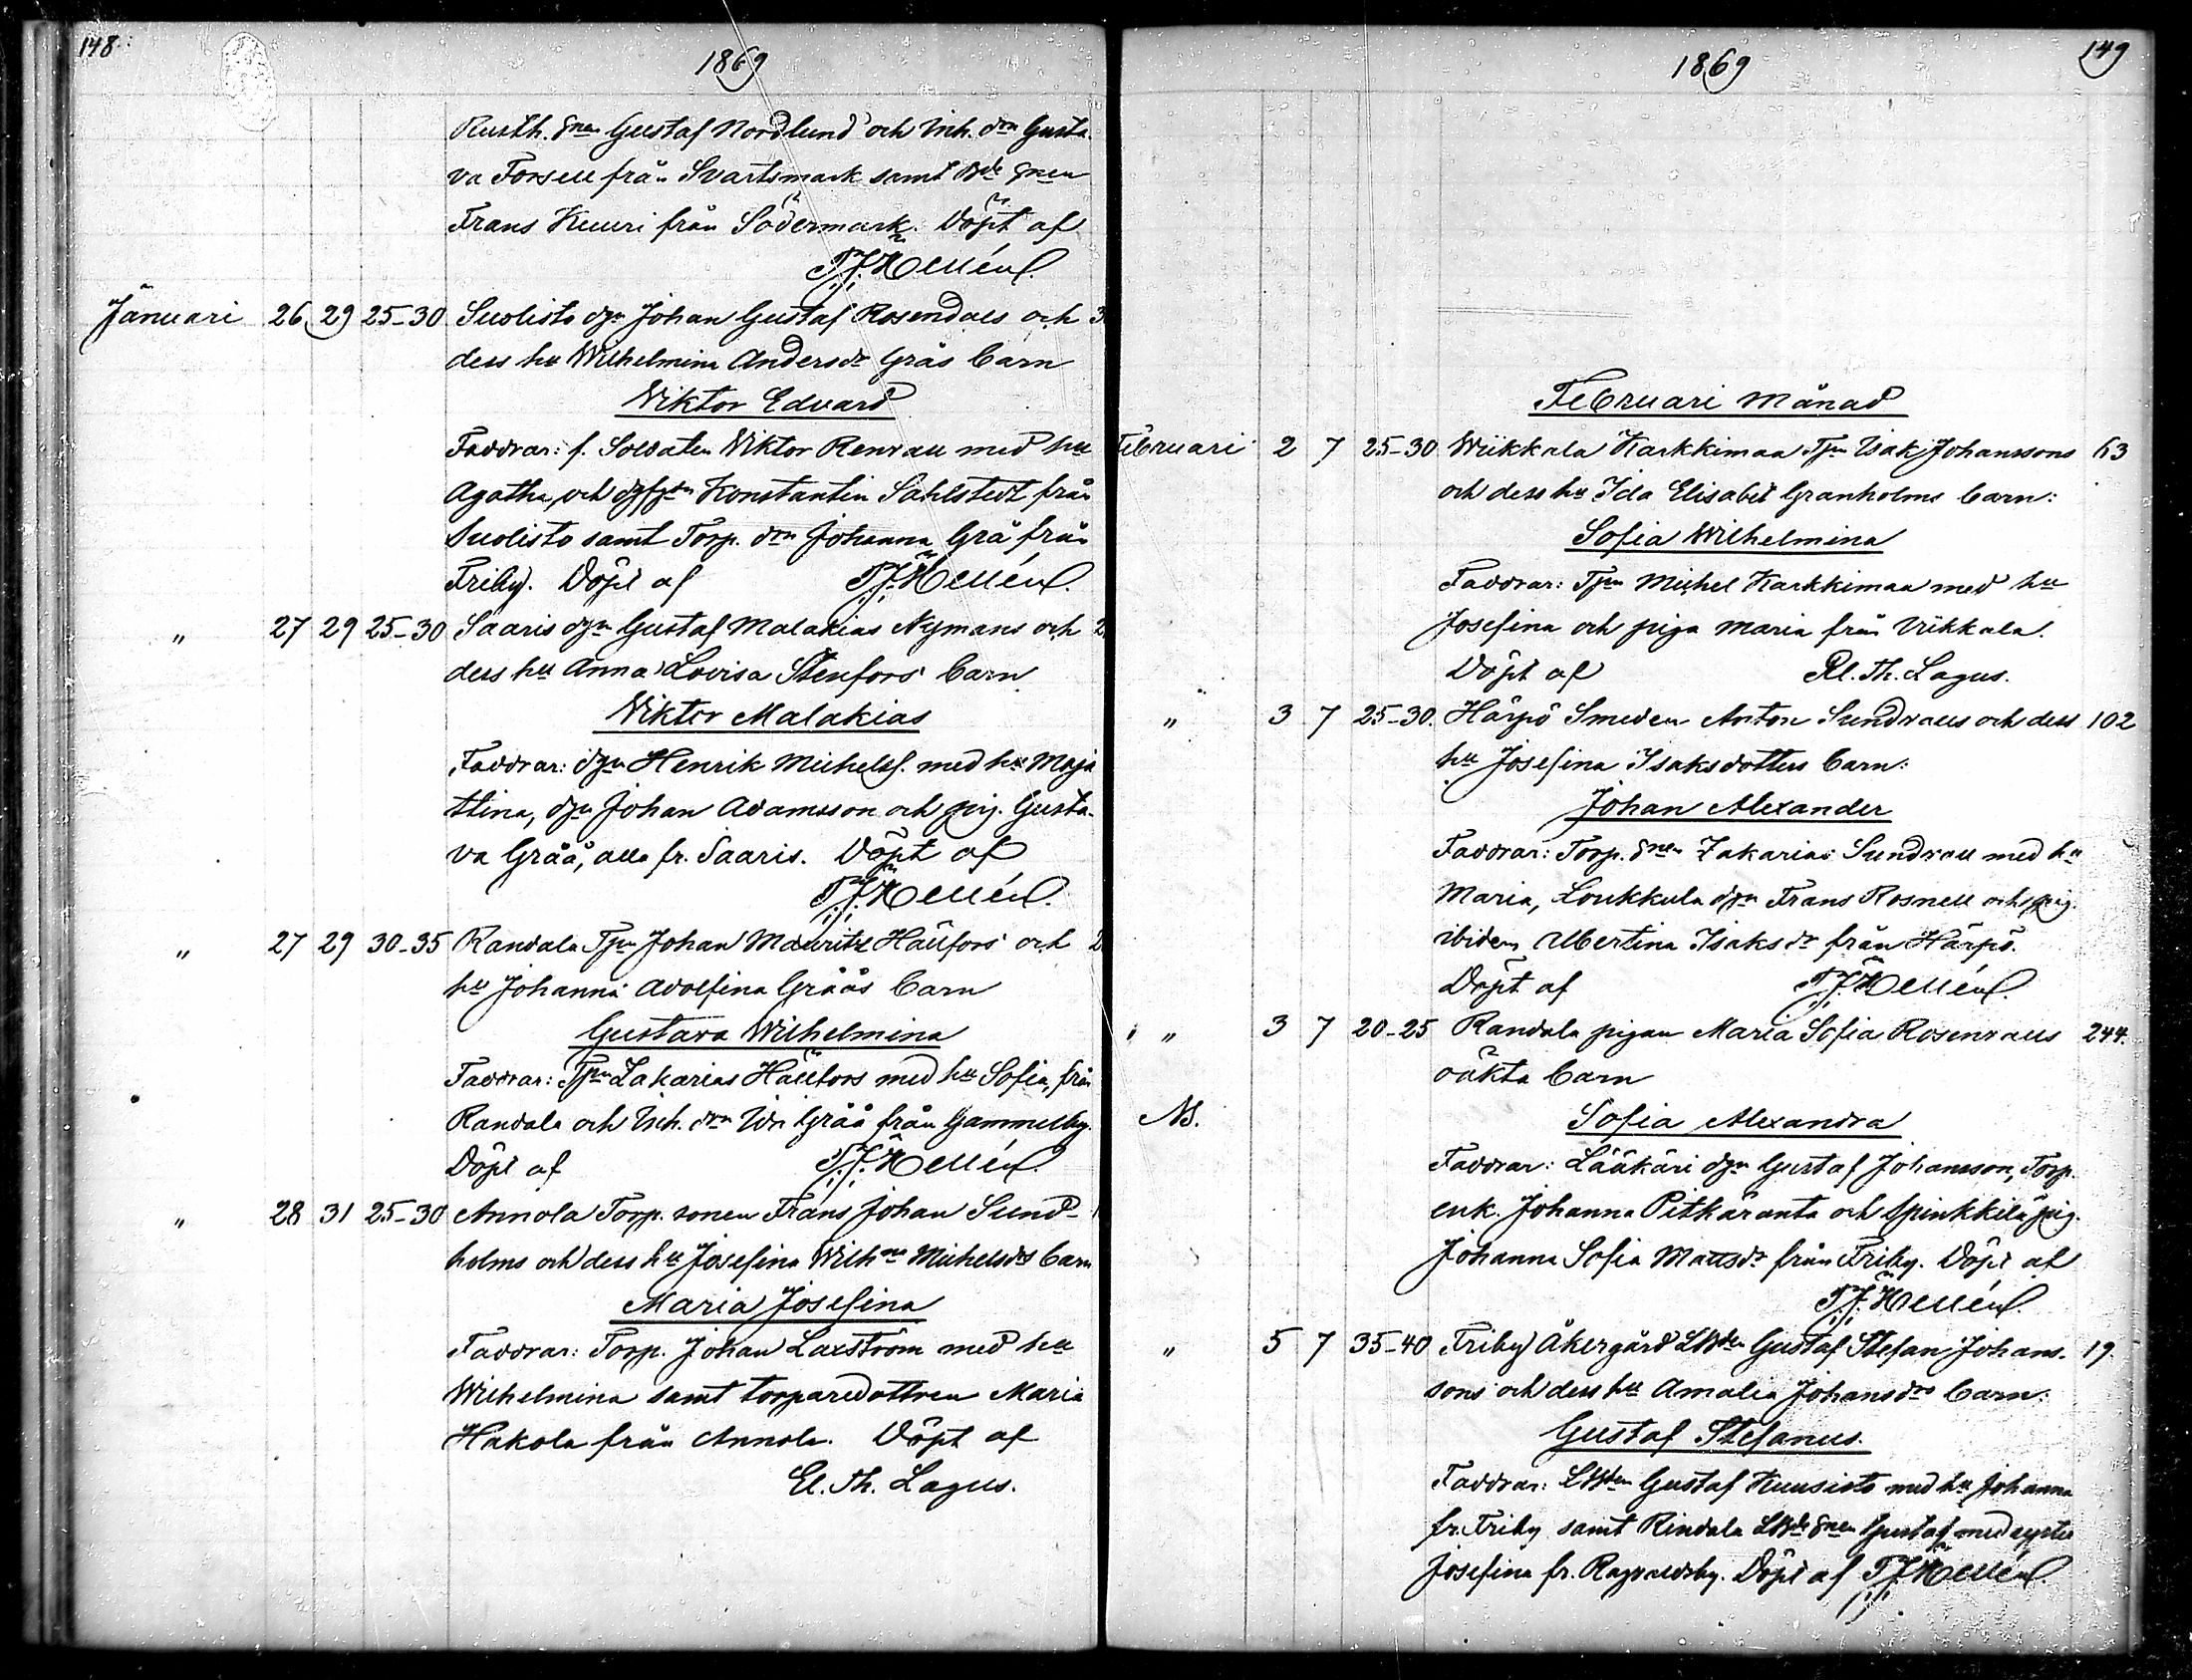 148.
1869
Rusth. snen Gustaf Nordlund och Inh. drn Gusta-
va Forsell från Svartsmark samt Bde snen
Frans Kuuri från Södermark. Döpt af
T.J. Hellén.
Januari 26 29 25-30 Suolisto dgn Johan Gustaf Rosendals och 3
dess hu Wilhelmina Andersdr Grås barn
Wiktor Edvard
Faddrar: f. Soldaten Wiktor Renvall med hu
Agatha, och Konstantin Sahlstedt från
Suolisto samt Torp. drn Johanna Grå från
Friby. Döpt af T.J. Hellén.
" 27 29 25-30 Saaris dgn Gustaf Malakias Nymans och 2
dess hu Anna Lovisa Stenfors barn
Wiktor Malakias
Faddrar: dgn Henrik Michelss. med hu Maja
Stina, dgn Johan Adamsson och pig. Gusta-
va Gråå, alla fr. Saaris. Döpt af
T.J. Hellén.
" 27 29 30-35 Randala Tpn Johan Mauritz Hällfors och 2
hu Johanna Adolfina Gråås barn
Gustava Wilhelmina
Faddrar: Tpn Zakarias Hällfors med hu Sofia, från
Randala och Inh. drn Ida Gråå från Gammelby.
Döpt af T.J. Hellén.
" 28 31 25-30 Annola Torp. sonen Frans Johan Sund-
holms och dess hu Josefina Wilhna Michelsdrs barn
Maria Josefina
Faddrar: Torp. Johan Laxström med hu
Wilhelmina samt torparedottren Maria
Hakola från Annola. Döpt af
El. Th. Lagus.
149
1869
Februari Månad
Februari 2 7 25-30 Wiikkala Karkkimaa Tpn Isak Johanssons 63
och dess hu Ida Elisabet Granholms barn:
Sofia Wilhelmina
Faddrar: Tpn Michel Karkkimaa med hu
Josefina och piga Maria från Viikkala.
Döpt af El. Th. Lagus.
" 3 7 25-30. Härpö Smeden Anton Sundvalls och dess 102
hu Josefina Isaksdotters barn:
Johan Alexander
Faddrar: Torp. snen Zakarias Sundvall med hu
Maria, Loukkula dgn Frans Rosnell och pig.
ibidem Albertina Isaksdr från Härpö.
Döpt af T.J. Hellén.
" 3 7 20-25 Randala pigan Maria Sofia Rosenvalls 244.
oäkta barn
NB. Sofia Alexandra
Faddrar: Lääkäri dgn Gustaf Johansson, Torp.
enk. Johanna Pitkäranta och Spinkkilä pig.
Johanna Sofia Mattsdr från Friby. Döpt af
T.J. Hellén.
" 5 7 35-40 Friby Åkergård LBden Gustaf Stefan Johans- 19.
sons och dess hu Amalia Johansdrs barn:
Gustaf Stefanus.
Faddrar: LBden Gustaf Kuusisto med hu Johanna
fr. Friby samt Rindala LBde snen Gustaf med syster
Josefina fr. Ragvaldsby. Döpt af T.J. Hellén.